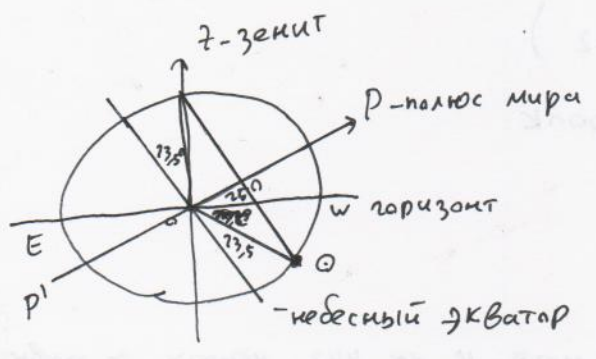 Z-зенит
P-полюс мира
23,5°
W горизонт
E
23,5
P'
-небесный экватор